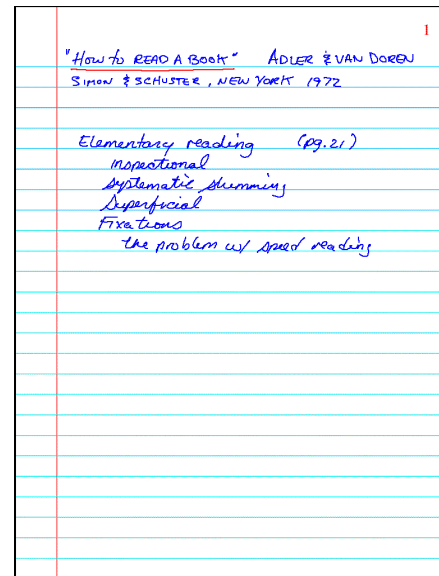 1
"How to READ A BOOK" ADLER & VAN DOREN
SIMON & SCHUSTER, NEW YORK 1972
Elementary reading (pg. 21)
inspectional
systematic skimming
Superficial
Fixations
the problem w/ speed reading